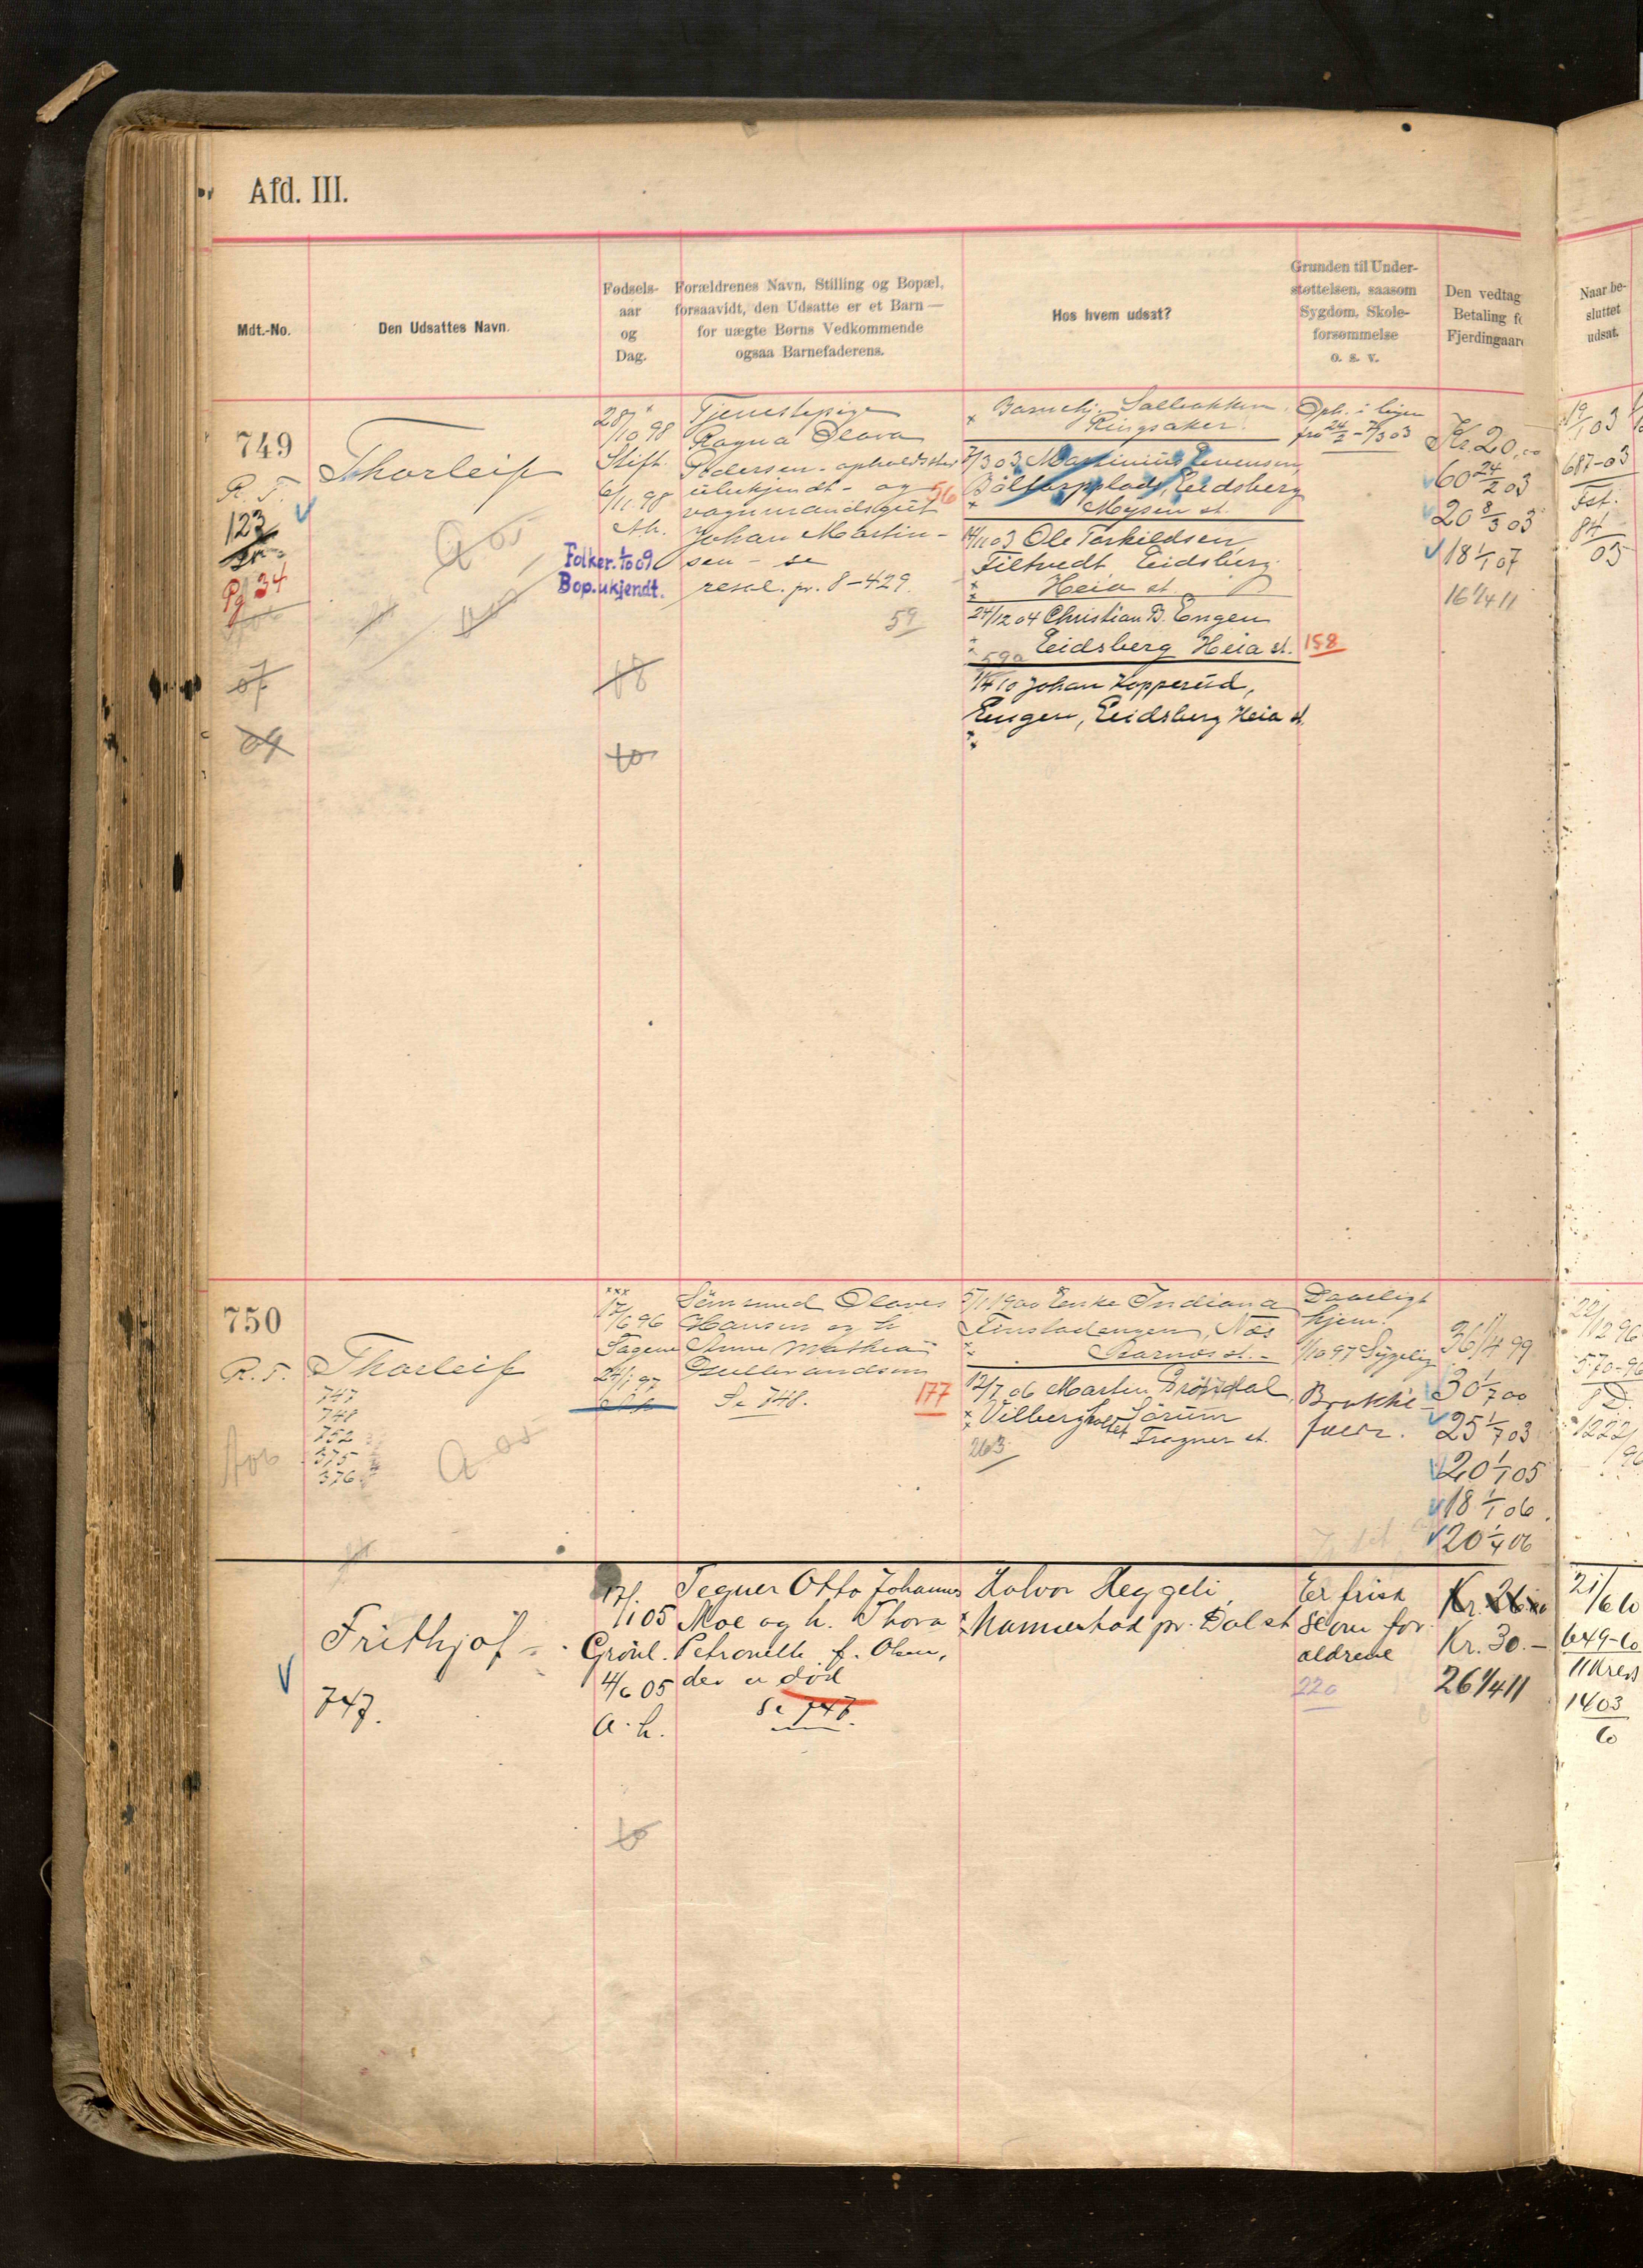 Afd. III.
Mdt.-No.
Den Udsattes Navn.
Fødsels-
aar
og
Dag.
Forældrenes Navn, Stilling og Bopæl,
forsaavidt, den Udsatte er et Barn —
for uægte Børns Vedkommende
ogsaa Barnefaderens.
Hos hvem udsat?
Grunden til Under-
støttelsen, saasom
Sygdom, Skole-
forsømmelse
o. s. v.
Den vedtag
Betaling fo
Fjerdingaar
Naar be-
sluttet
udsat.
749
R. T.
123
Pg 34
07
09
Thorleif
A 05
28/10 98
Stift.
6/11 98
Ah.
Folker. 1/10 09
Bop. ukjendt.
08
10
Tjenestepige
Ragna Olava
Pedersen - opholdssted
ubekjendt - og
vognmandsgut
Johan Martin-
sen - se
resol. pr. 8-429.
56
59
Barnehj. Solbakken
Ringsaker
7/3 03 Martinius Evensen
Eidsberg
Mysen st.
14/11 03 Ole Torkildsen
Filtvedt Eidsberg
Heia st.
24/12 04 Christian B. Engen
Eidsberg Heia st.
59a
158
1/4 10 Johan Kopperud,
Engen, Eidsberg Heia st.
Oph. i
fra 24/2 - 7/3 03
Kr 20,00
60 24/2 03
20 8/3 03
18 1/1 07
16 1/4 11
19/1 03
687-03
Fst.
84
03
750
R. T.
Thorleif
747
748
752
375
376
A 06
A 05
17/6 96
Fagene
24/1 97
Olaves
Hansen og h
Anne Mathea
Gulbrandsen
Se 748.
177
5/1 1900 Enke Indiana
Finstadengen, Næs
Aarnes st.
12/7 06 Martin Brøndal,
Vilberg Sørum
Frogner st.
263
Daarligt
hjem.
1/10 97 Sygelig
Brokk
36 1/4 99
30 1/7 00
25 1/7 03
20 1/1 05
18 1/1 06
20 1/4 06
22/12 96
570-96
1222/96
Frithjof
747.
17/1 05
Grønl.
4/6 05
a. h.
10
Tegner Otto Johannes
Moe og h. Thora
Petronelle f. Olsen,
der er død
Se 747.
Halvor Heggeli,
Mannerhad pr. Dal st
Er frisk
Se om for
ældrene
220
Kr. 26.00
Kr. 30.-
26 1/4 11
21/6 10
649-10
11 Kreds
1403
10